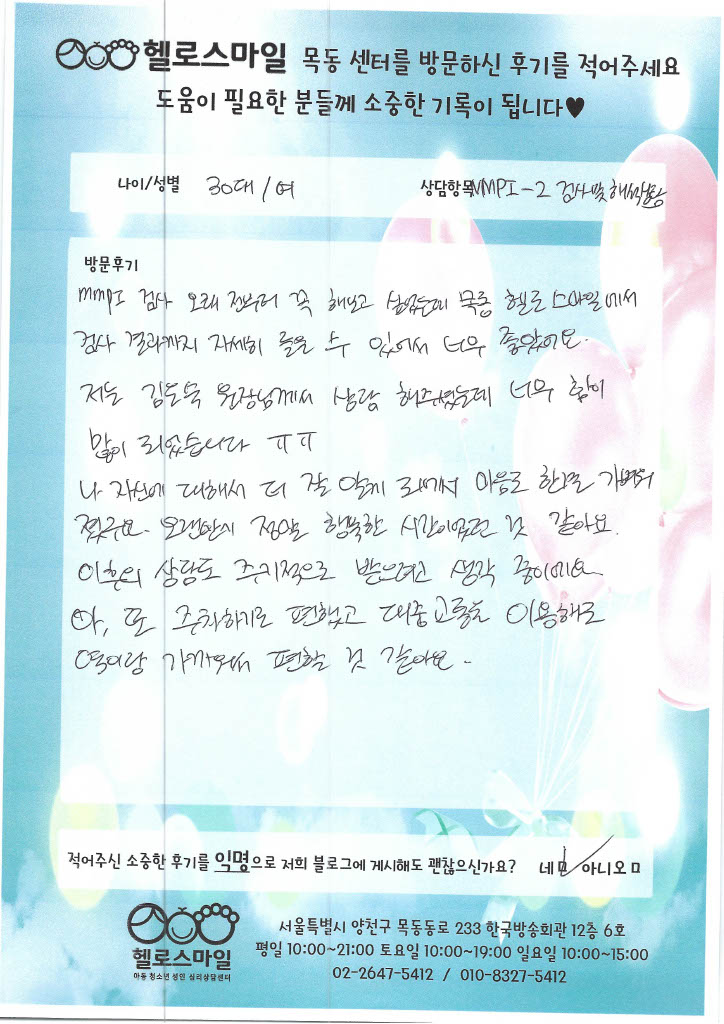 헬로스마일 목동 센터를 방문하신 후기를 적어주세요
도움이 필요한 분들께 소중한 기록이 됩니다♥
나이/성별 30대/여 상담항목 MMPI-2 검사및해석상담
방문후기
mmpI 검사 오래 전부터 꼭 해보고 싶었는데 목동 헬로스마일에서
검사 결과까지 자세히 들을 수 있어서 너무 좋았어요.
저는 원장님께서 상담 해주셨는데 너무 힘이
많이 되었습니다 ㅠㅠ
나 자신에 대해서 더 잘 알게 되어서 마음도 한결 가벼워
졌구요. 오랜만에 정말 행복한 시간이었던 것 같아요.
이후의 상담도 주기적으로 받으려고 생각 중이에요
아, 또 주차하기도 편했고 대중교통을 이용해도
역이랑 가까워서 편할 것 같아요.
적어주신 소중한 후기를 익명으로 저희 블로그에 게시해도 괜찮으신가요? 네□ 아니오□
헬로스마일
아동 청소년 성인 심리상담센터
서울특별시 양천구 목동동로 233 한국방송회관 12층 6호
평일 10:00~21:00 토요일 10:00~19:00 일요일 10:00~15:00
02-2647-5412 / 010-8327-5412